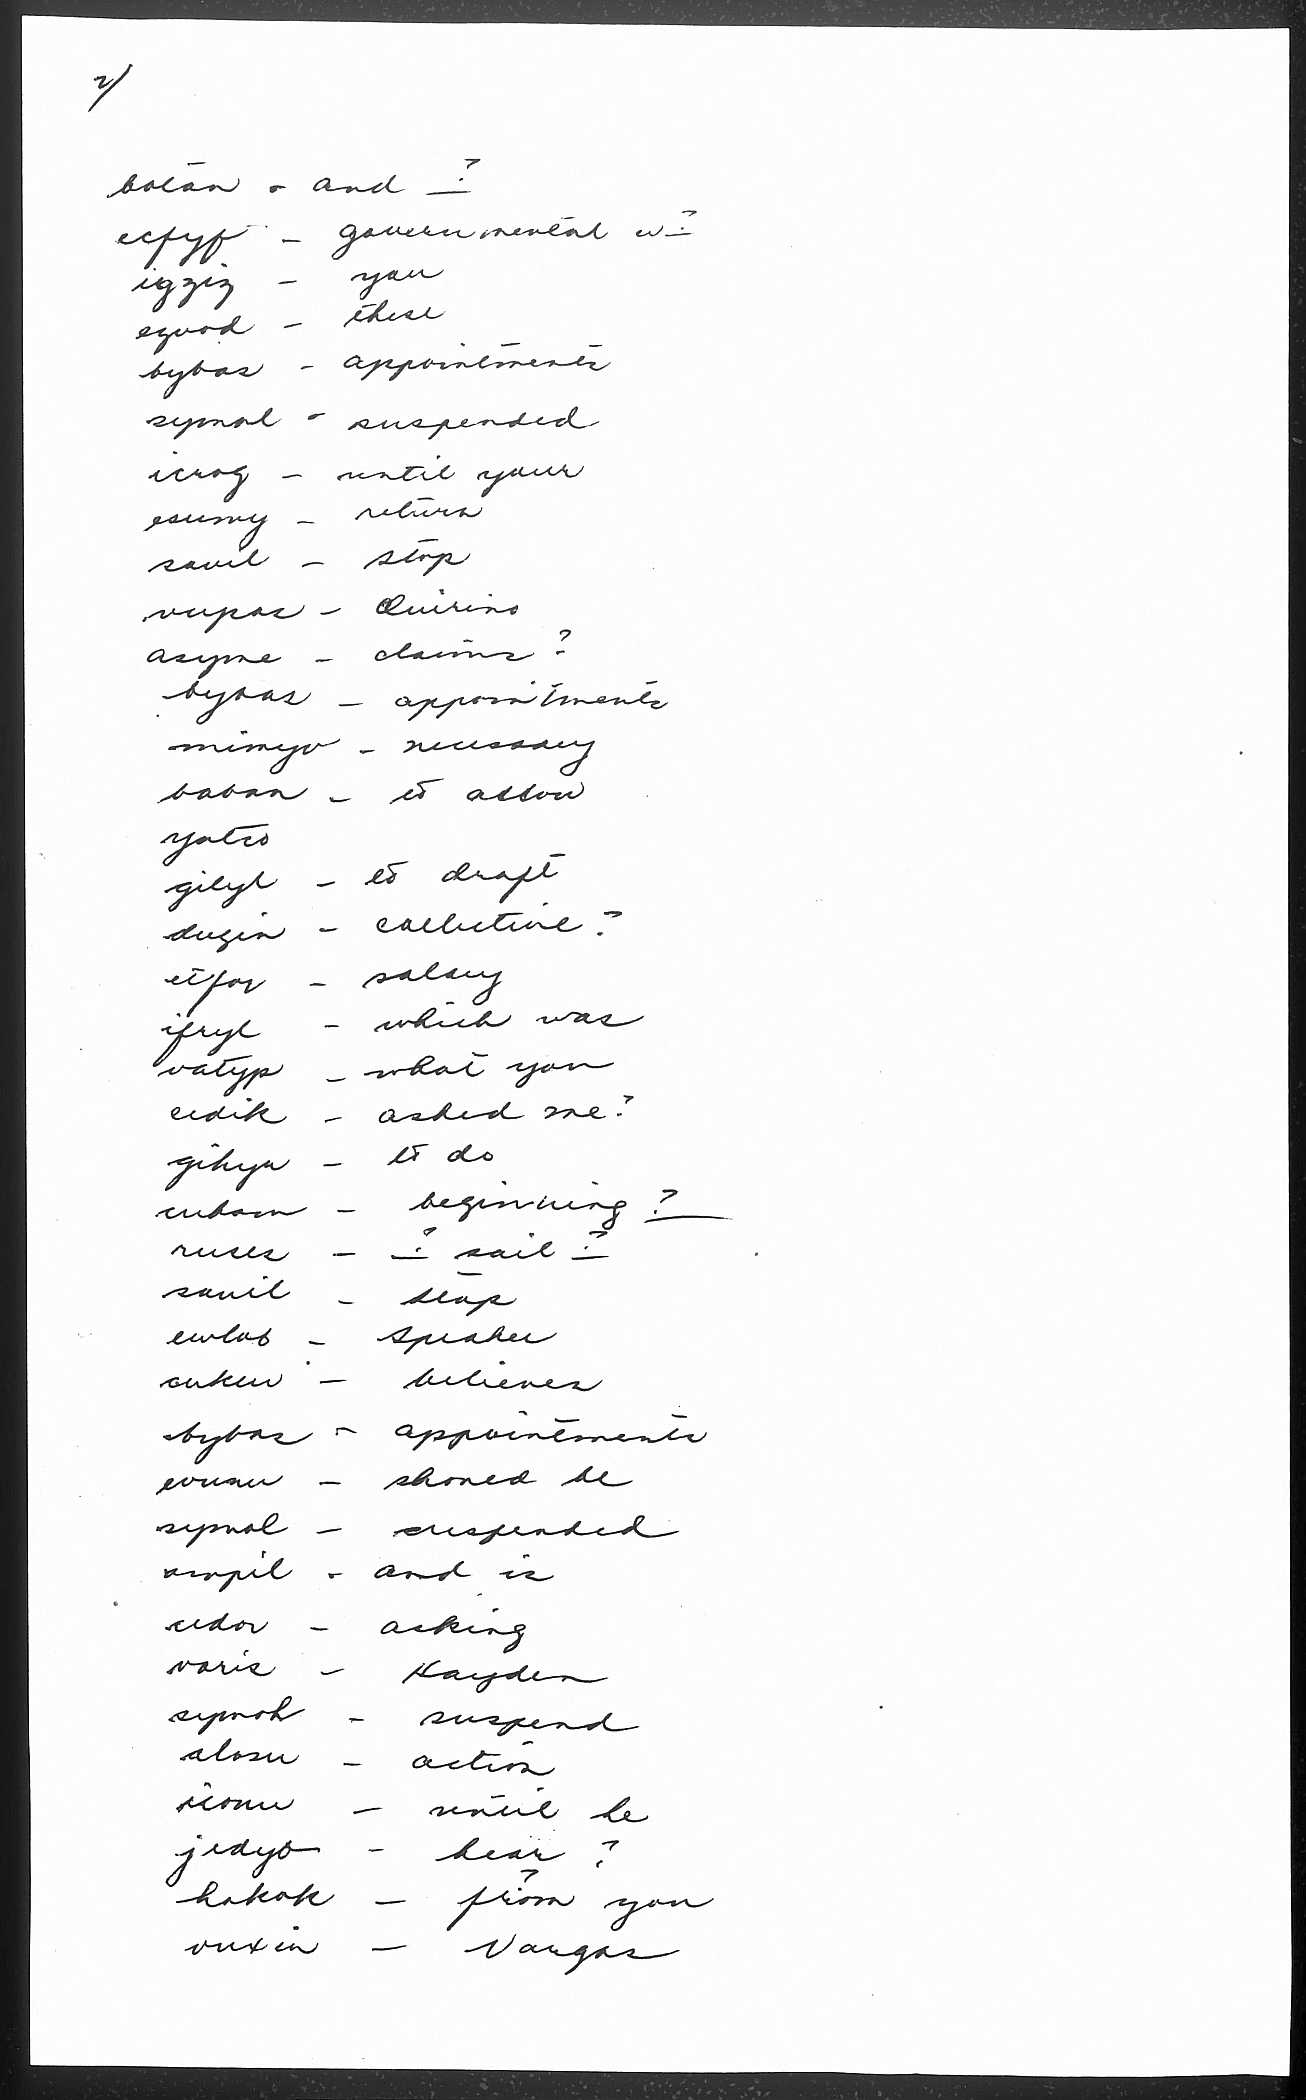 2/
botan - and ?
ecfyf - governmental w?
igziz - you
equod - these
bybas - appointments
symol - suspended
icrog - until your
esumy - return
savil - stop
vupas - Quirino
asyme - claims?
bybas - appointments
mimyv - necessary
baban - to allow
yatso
gilyl - to draft
dugin - collective?
etfov - salary
ifryl - which was
vatyp - what you
cedik - asked me?
gihyu - to do
cubam - beginning ?
ruses - ? sail ?
savil - stop
ewlob - Speaker
cukew - believes
bybas - appointments
evunu - should be
symol - suspended
ampil - and is
cedor - asking
varis - Hayden
symoh - suspend
alosu - action
iconu - until he
jedyb - hear ?
hokok - from you
vuxin - Vargas